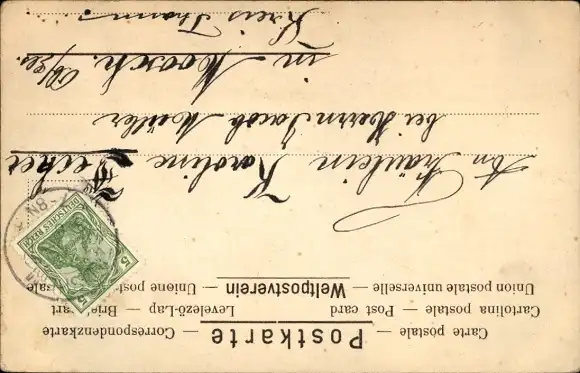 Carte postale — Postkarte — Correspondenzkarte
Cartolina postale — Post card Levelező-Lap — Briefkaart
Union postale universelle — Weltpostverein — Unione postale
DEUTSCHES REICH
5 5
An Fräulein Karoline
bei Herrn Jacob Müller
in Moosch. Ob/Els.
Kreis Thann.